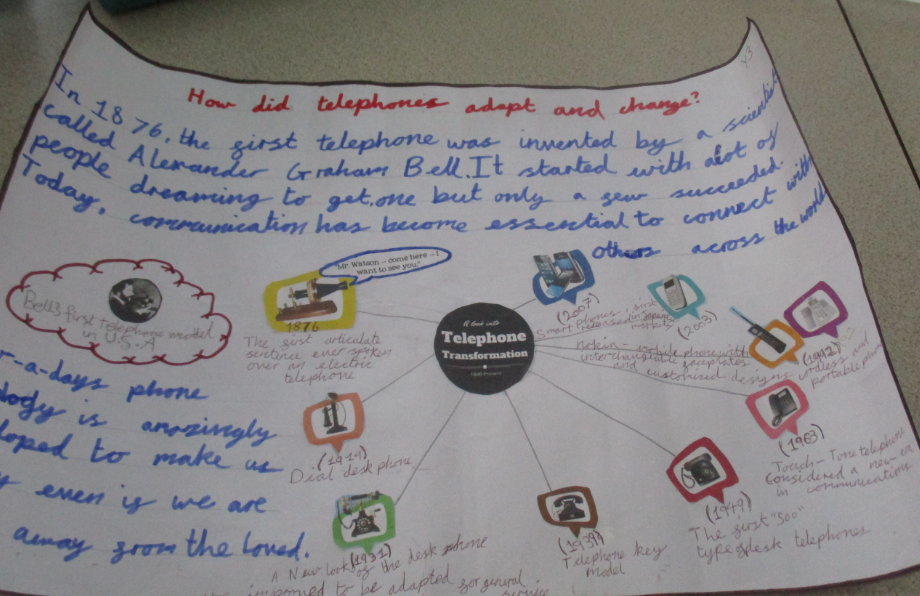 How did telephones adapt and change?
In 1876, the first telephone was invented by a scientist
called Alexander Graham Bell. It started with alot of
people dreaming to get one but only a few succeeded.
Today, communication has become essential to connect with
others across the world
"Mr. Watson – come here – I
want to see you."
Bell's first telephone model
in U.S.A
1876
The first articulate
sentence ever spoken
over an electric
telephone
A look into
Telephone
Transformation
(2007)
Smart phones, first
(2003)
mobile phone with
interchangable faceplates
and customized designs
(1992)
cordless and
portable phone
(1963)
Touch-Tone telephone
Considered a new era
in communications
(1949)
The first "500"
type desk telephones
(1939)
Telephone key
model
(1931)
A New look of the desk phone
to be adapted for general
service
(1919)
Dial desk phone
r-a-days phone
ology is amazingly
loped to make us
even if we are
away from the loved.
43